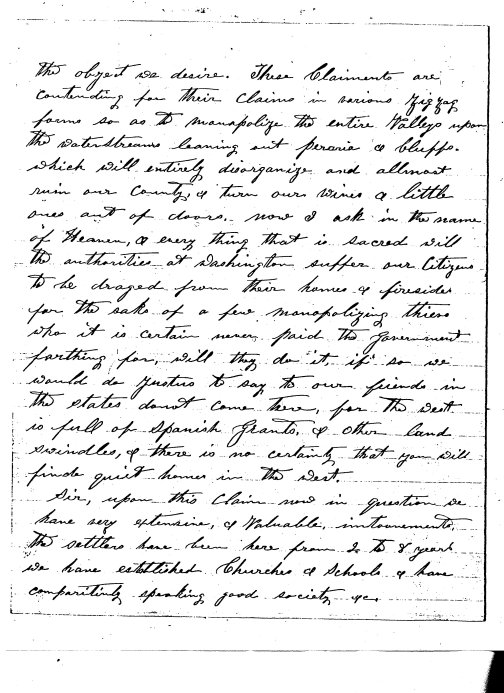 the object we desire. These Claiments are
contending for their claims in various zigzag
forms so as to monapolize the entire Valleys upon
the waterstreams leaning out peraria & bluffs.
which will entirely disorganize and allmost
ruin our County, & turn our wives & little
ones out of doors. now I ask in the name
of Heaven, & every thing that is sacred will
the authorities at Washington suffer our Citizens
to be draged from their homes & firesides
for the sake of a few monapolizing thievs
who it is certain never paid the Government
farthing for, will they do it, if so we
would do justus to say to our friends in
the states donot come here, for the west
is full of Spanish Grants, & other land
swindles, & there is no certainty that you will
finde quiet homes in the West.
Sir, upon this Claim now in question we
have very extensive, & Valuable, improvements,
the settlers have been here from 2 to 8 years
we have establlished Churches & Schools & have
comparitinly speaking good society &c.